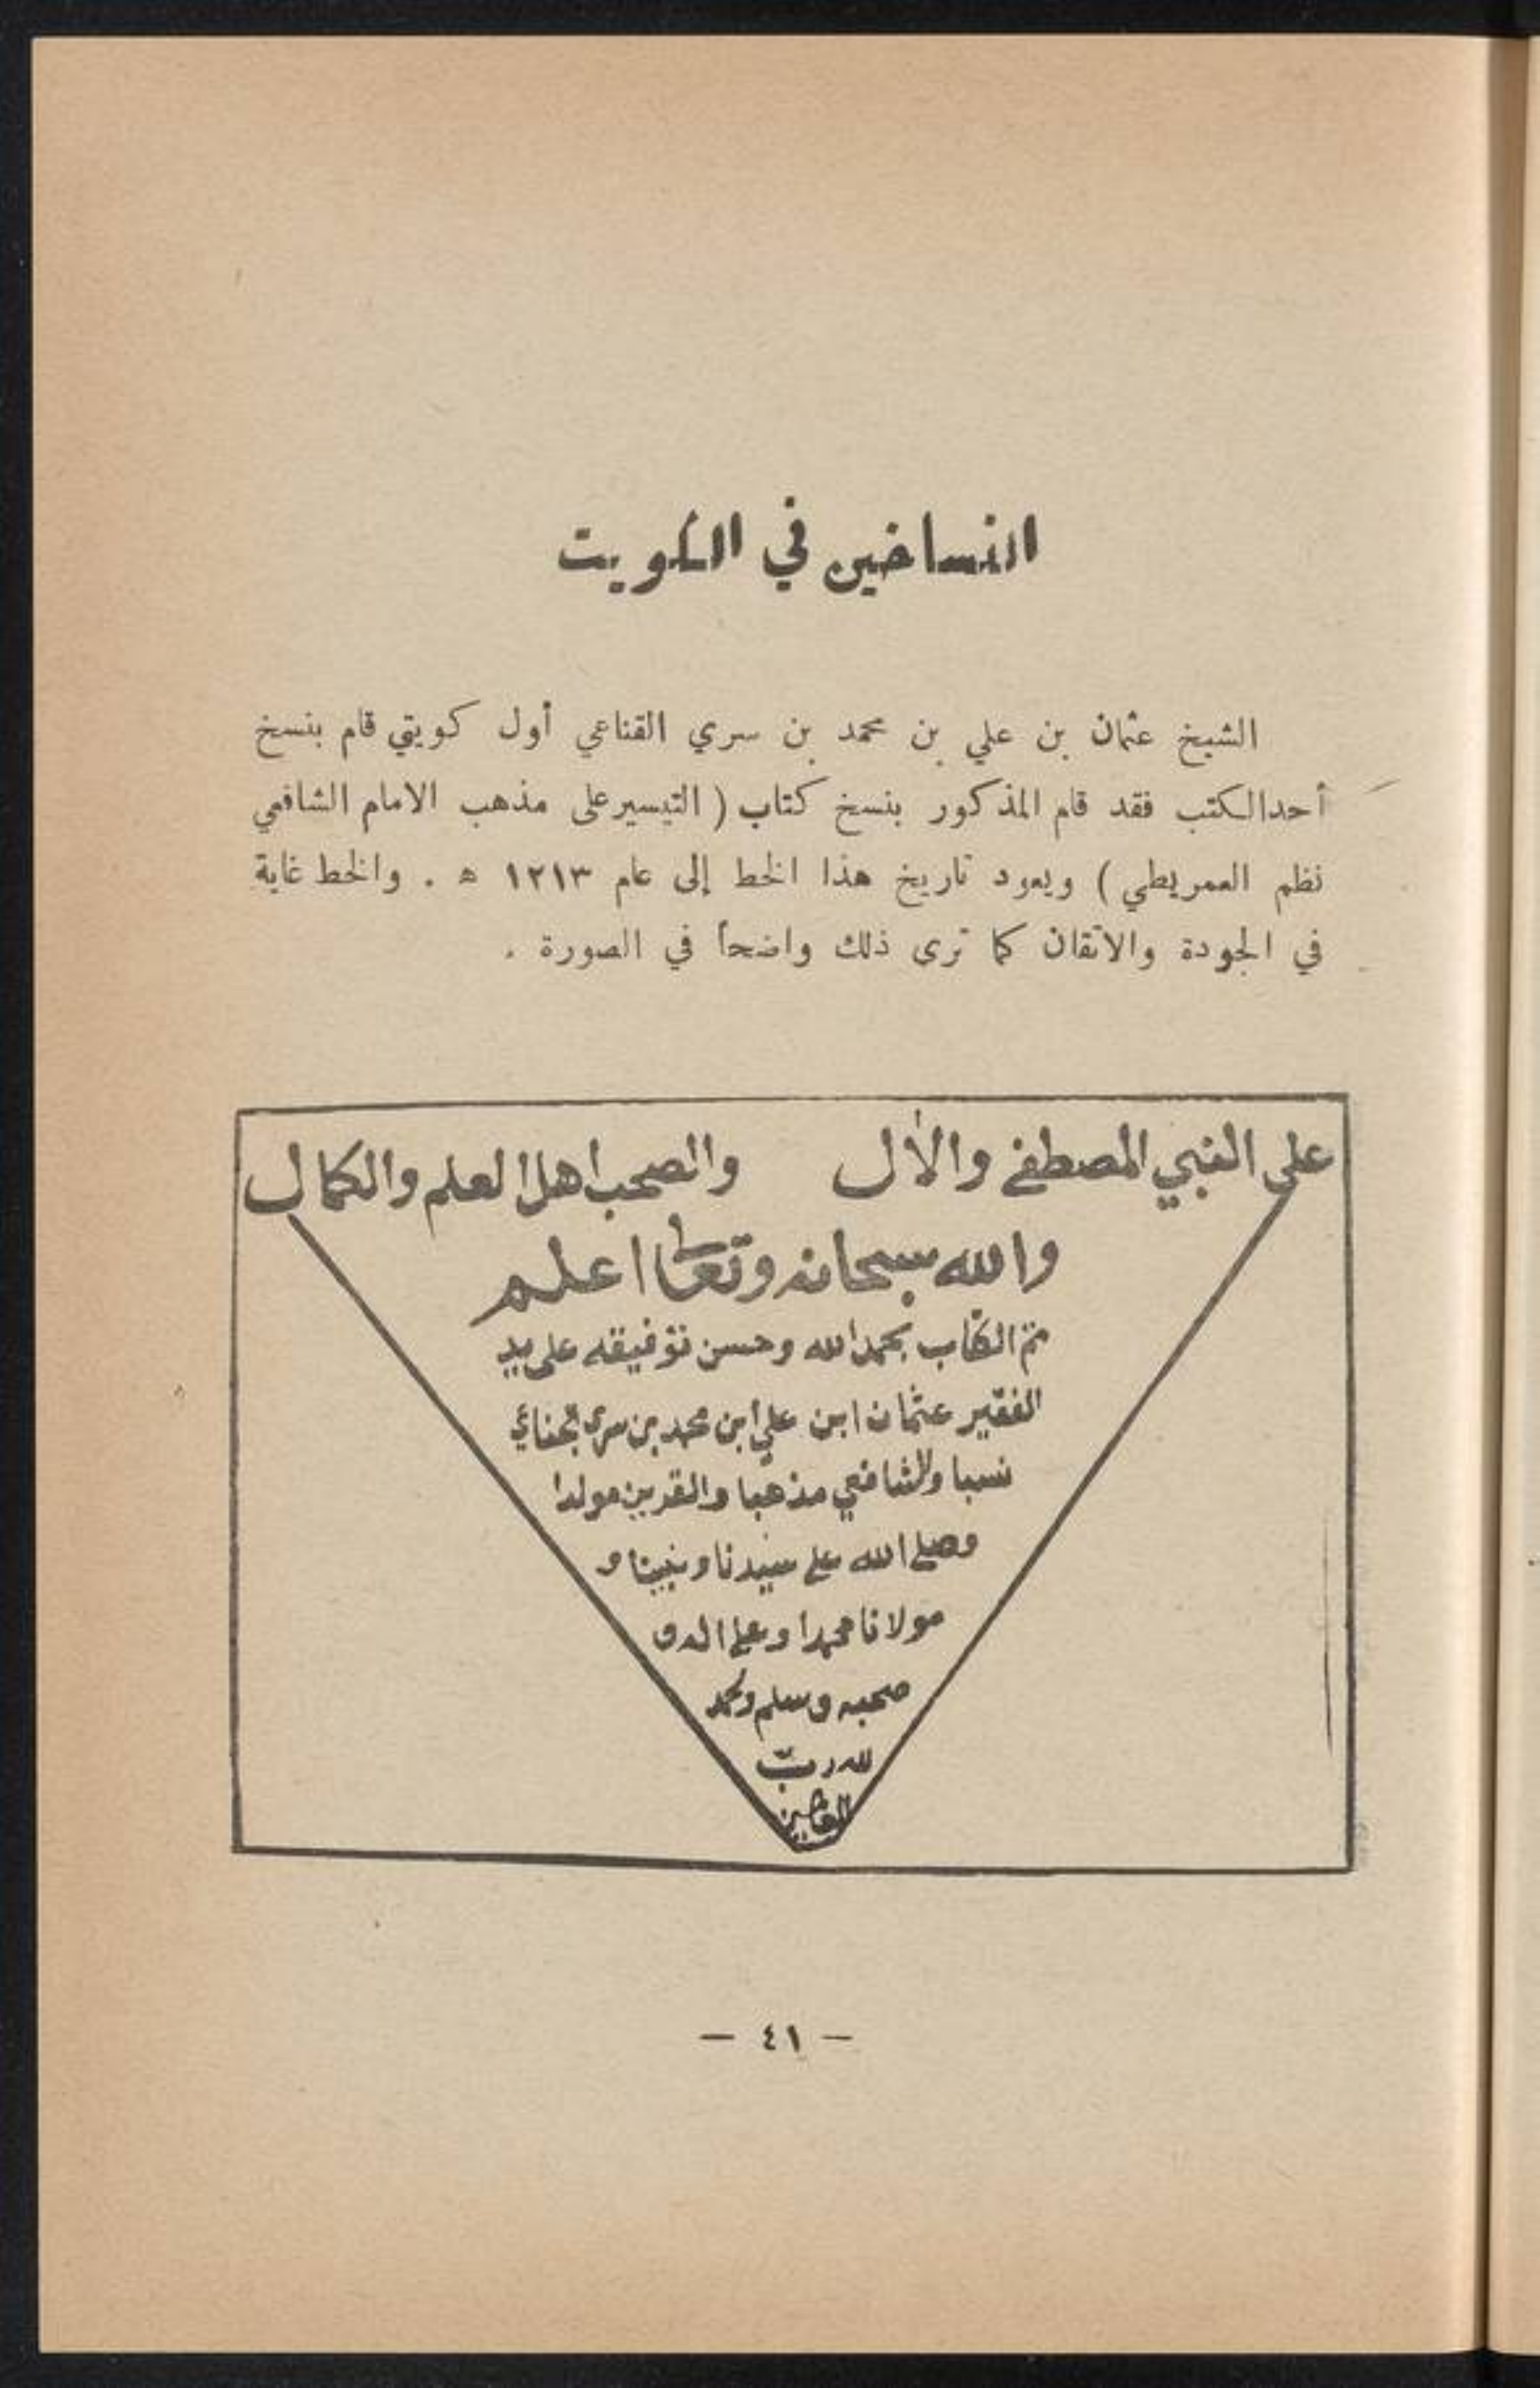 النساخين في الكويت
الشيخ عثمان بن علي بن محمد بن سري القناعي أول كويتي قام بنسخ
أحد الكتب فقد قام المذكور بنسخ كتاب ( التيسير على مذهب الامام الشافعي
نظم العمريطي ) ويعود تاريخ هذا الخط إلى عام ١٢١٣ ه . والخط غاية
في الجودة والاتقان كما ترى ذلك واضحاً في الصورة .
على النبي المصطفى والآل والصحب اهل العلم والكمال
والله سبحانه وتعالى اعلم
تم الكتاب بحمد الله وحسن توفيقه على يد
الفقير عثمان ابن علي ابن محمد بن سري
نسبا والشافعي مذهبا والقرين مولدا
وصلى الله على سيدنا ونبينا و
مولانا محمدا وعلى اله و
صحبه وسلم والحمد
لله رب
العالمين
— ٤١ —